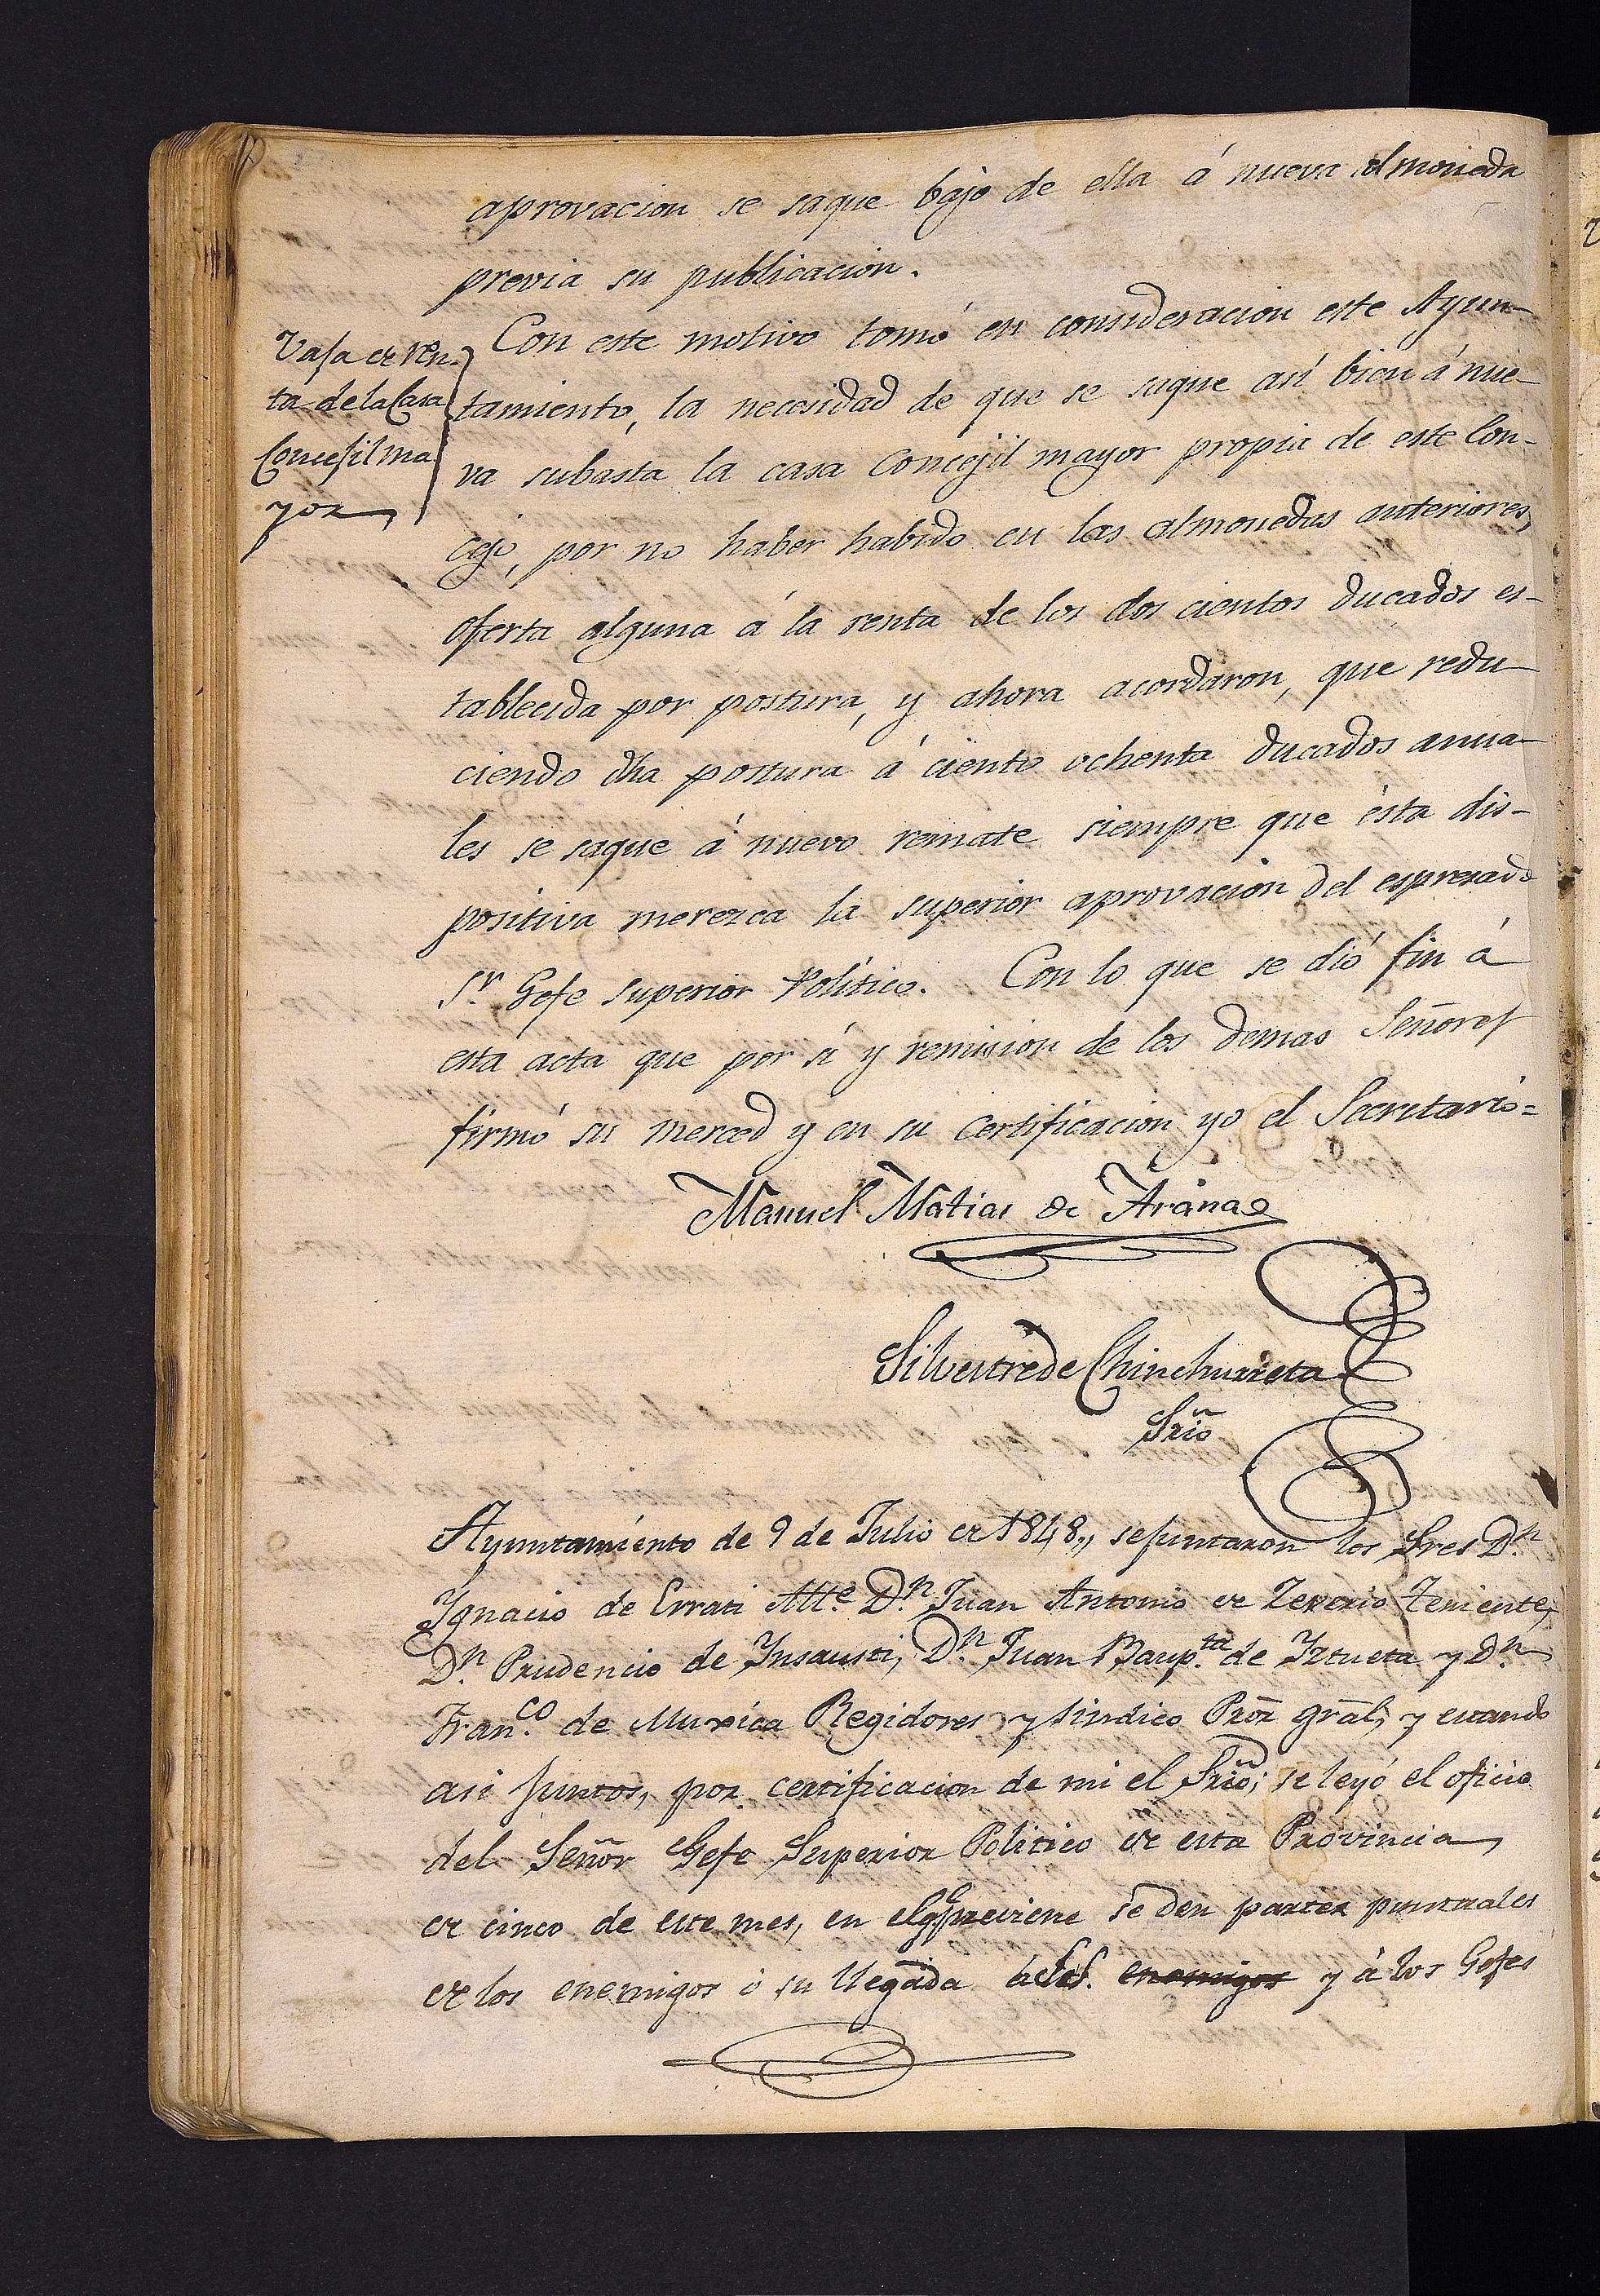 aprovacion se saque bajo de ella á nueva almoneda
previa su publicacion.
Vaja de ren-
ta de la Casa
Concejil ma
yor
Con este motivo tomó en consideracion este Ayun-
tamiento, la necesidad de que se saque así bien á nue-
va subasta la casa Concejil mayor propia de este Con-
cejo, por no haber habido en las almonedas anteriores,
oferta alguna á la renta de los dos cientos ducados es-
tablecida por postura, y ahora acordaron, que redu-
ciendo dha postura á ciento ochenta ducados anua-
les se saque á nuevo remate siempre que ésta dis-
positiva merezca la superior aprovacion del espresado
Sr. Gefe Superior Político. Con lo que se dió fin á
esta acta que por sí y remision de los demas Señores
firmó su merced y en su certificacion yo el Secretario=
Manuel Matias de Arana
Silvestre de Chinchurreta
Srio
Ayuntamiento de 9 de Julio de 1848,, se juntaron los Sres Dn.
Ignacio de Errati Alte. Dn. Juan Antonio de Zererio Teniente,
Dn. Prudencio de Insausti, Dn. Juan Baupta. de Iztueta y Dn.
Franco. de Muxica Regidores y sindico Pror gral, y estando
asi juntos, por certificacion de mi el Srio; se leyó el oficio
del Señor Gefe Superior Politico de esta Provincia
de cinco de este mes, en el qe previene se den partes puntuales
de los enemigos ó su llegada á enemigos y á los Gefes